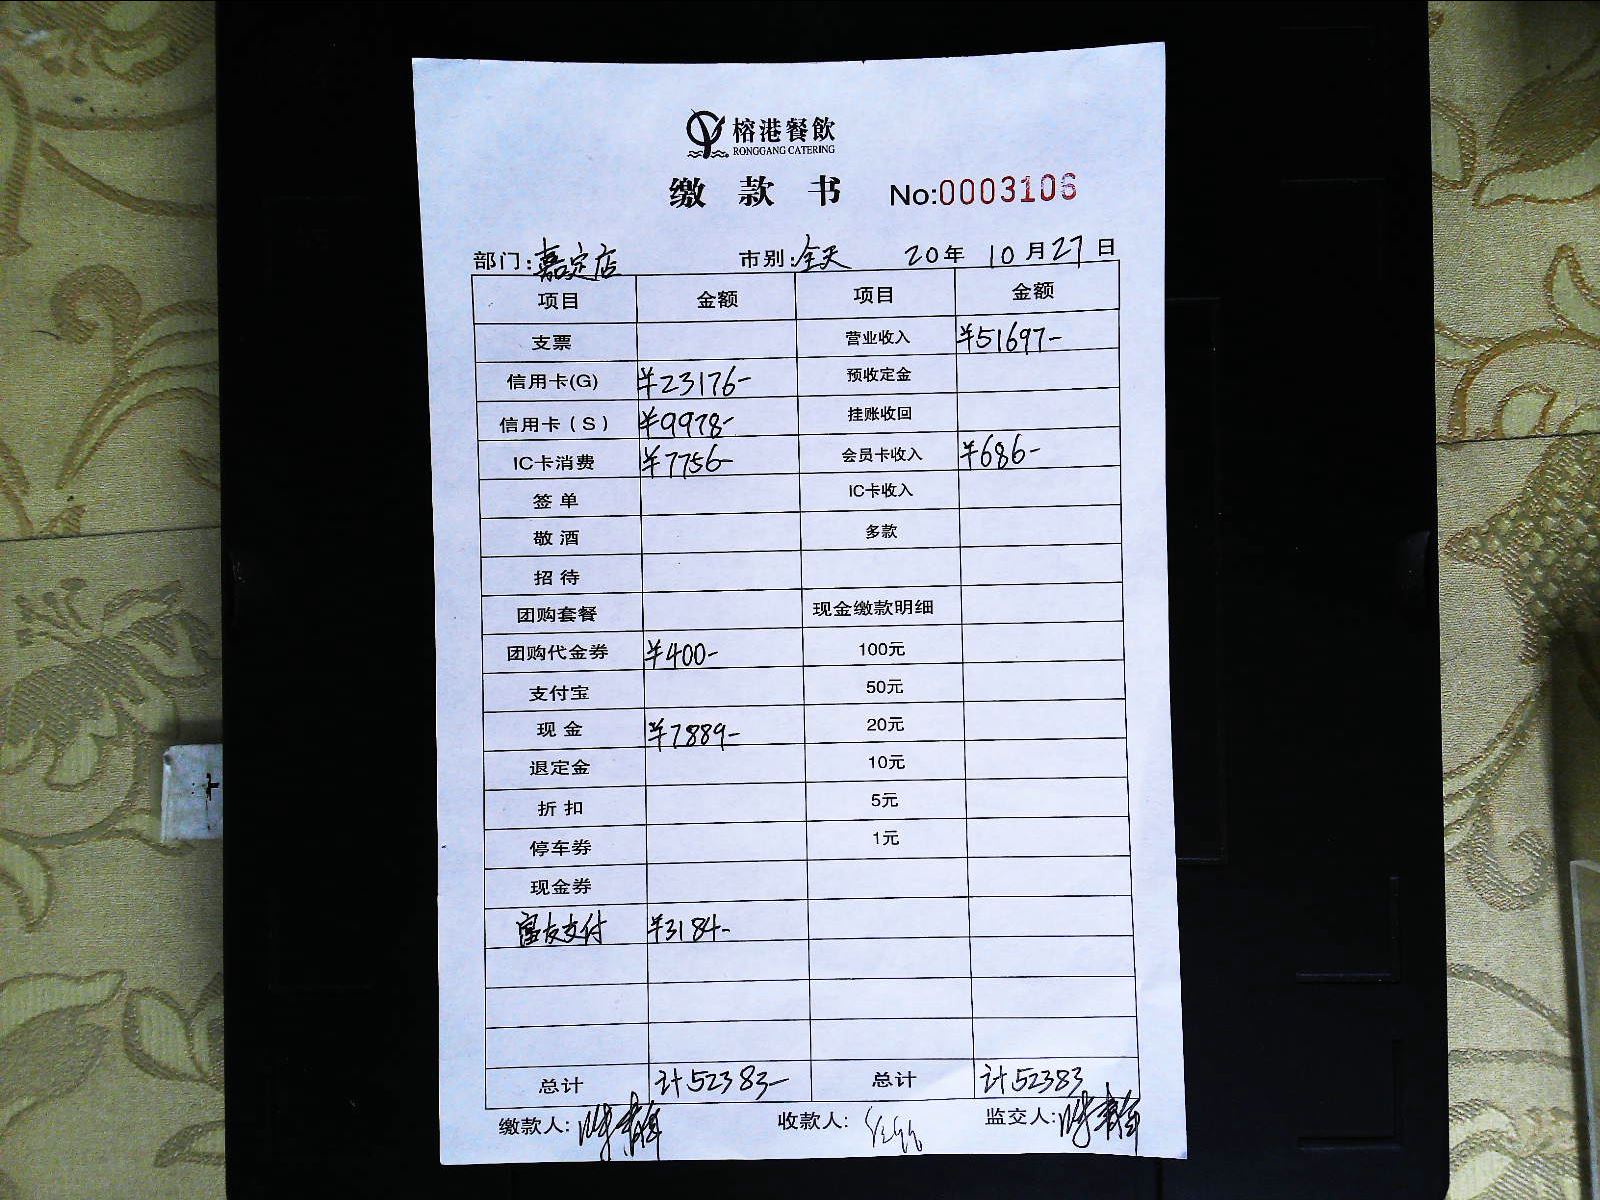 榕港餐飲
RONGGANG CATERING
缴款书 No:0003106
部门:嘉定店 市别:全天 20年 10月27日
项目 金额 项目 金额
支票 营业收入 ¥51697-
信用卡(G) ¥23176- 预收定金
信用卡(S) ¥9978- 挂账收回
IC卡消费 ¥7756- 会员卡收入 ¥686-
签单 IC卡收入
敬酒 多款
招待
团购套餐 现金缴款明细
团购代金券 ¥400- 100元
支付宝 50元
现金 ¥7889- 20元
退定金 10元
折扣 5元
停车券 1元
现金券
富友支付 ¥3184-
总计 计52383- 总计 计52383
缴款人: 收款人: 监交人: